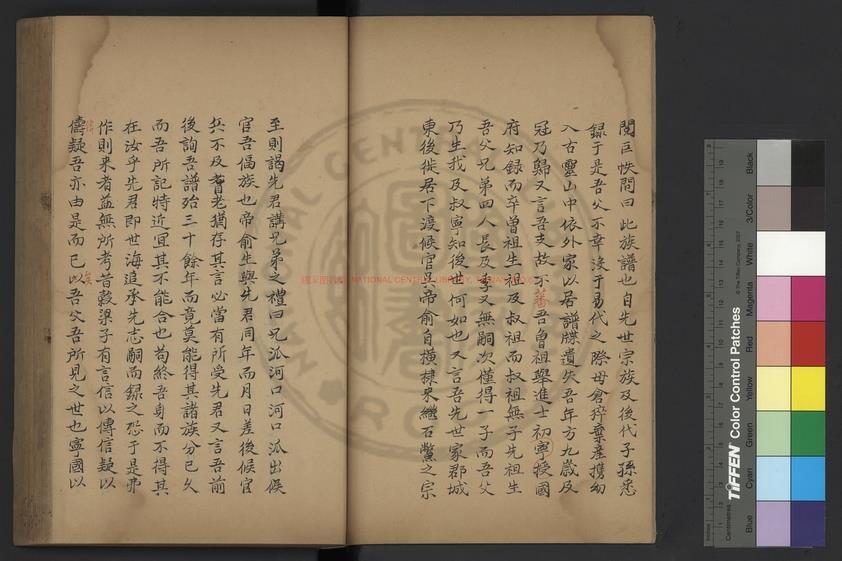 閲巨帙問曰此族譜也自先世宗族及後代子孫悉
録于是吾父不幸沒于易代之際母倉猝棄產攜幼
入古靈山中依外家以居譜牒遺失吾年方九歲及
冠乃歸又言吾支故不蕃吾曾祖舉進士初寧授國
府知録而卒曾祖生祖及叔祖而叔祖無子先祖生
吾父兄弟四人長及季又無嗣次僅得一子而吾父
乃生我及叔寧知後世何如也又言吾先世家郡城
東後徙居下渡候官吳帝俞自橫隸來繼石鱉之宗
至則謁先君講兄弟之禮曰兄派河口河口派出候
官吾偈族也帝俞生與先君同年而月日差後候官
兵不及耆老猶存其言必當有所受先君又言吾前
後詢吾譜殆三十餘年而竟莫能得其諸族分已久
而吾所記特近宜其不能合也苟終吾身而不得其
在汝乎先君即世海追承先志嗣而録之恐于是弗
作則来者益無所考昔穀梁子有言信以傳信疑以
傳疑吾亦由是而已以吾父吾所見之世也寧國以
傳
矣
國家圖書館 NATIONAL CENTRAL LIBRARY,
TIFFEN Color Control Patches
© The Tiffen Company, 2007
Blue
Cyan
Green
Yellow
Red
Magenta
White
3/Color
Black
Centimetres
Inches